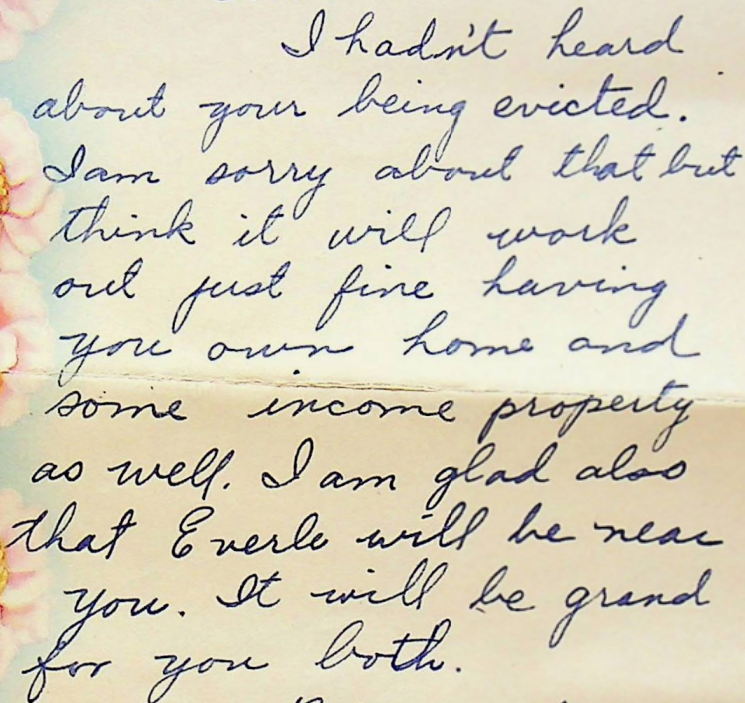 I hadn't heard
about your being evicted.
I am sorry about that but
think it will work
out just fine having
you own home and
some income property
as well. I am glad also
that Everle will be near
you. It will be grand
for you both.